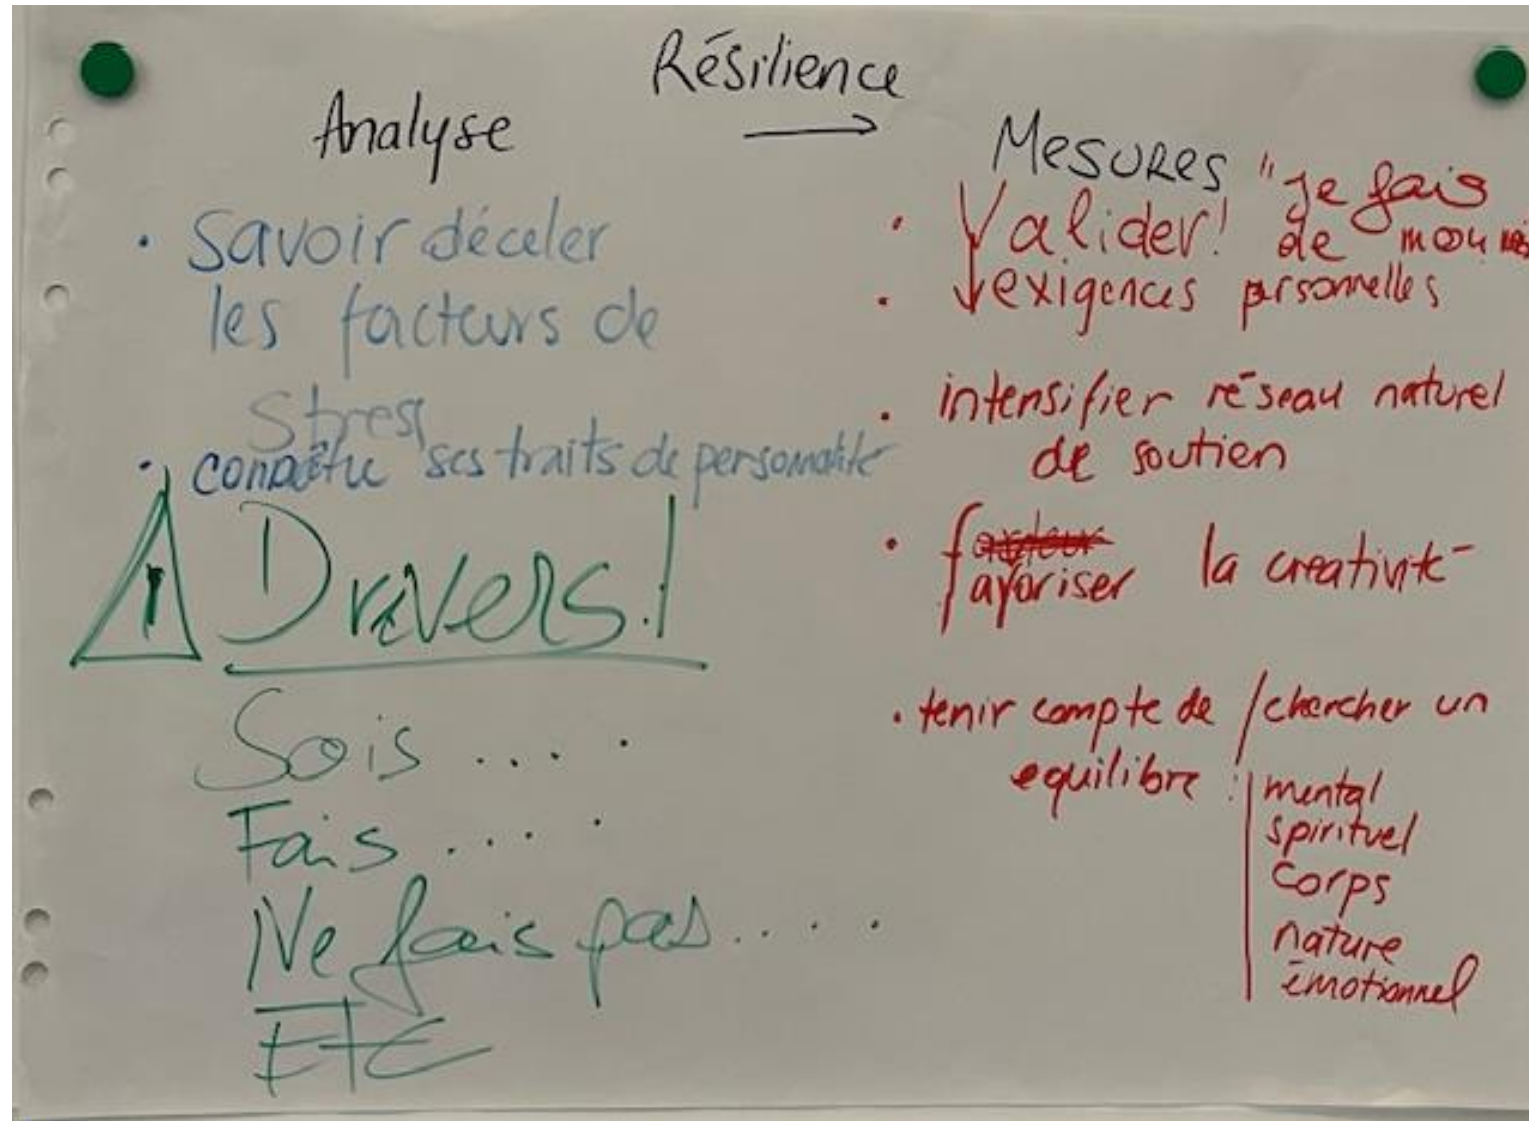 Résilience
Analyse → Mesures
• Savoir déceler
les facteurs de
stress
• connaître ses traits de personalité
! Drivers!
Sois ....
Fais ....
Ne fais pas ....
Etc
• Valider! "je fais
de mon
• ↓ exigences personnelles
• intensifier réseau naturel
de soutien
• favoriser la créativité
• tenir compte de / chercher un
equilibre : mental
spirituel
corps
nature
émotionnel